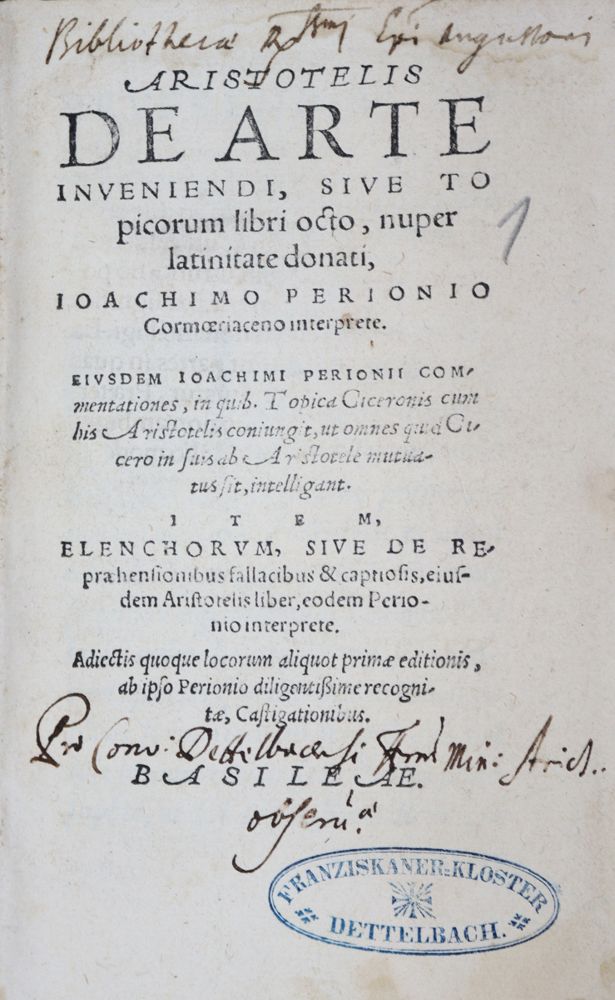 Bibliothecæ Rssmi Epi Augustani
ARISTOTELIS
DE ARTE
INVENIENDI, SIVE TO
picorum libri octo, nuper
latinitate donati,
1
IOACHIMO PERIONIO
Cormœriaceno interprete.
EIVSDEM IOACHIMI PERIONII COM-
mentationes, in quib. Topica Ciceronis cum
his Aristotelis coniungit, ut omnes quid Ci-
cero in suis ab Aristotele mutua-
tus sit, intelligant.
ITEM,
ELENCHORVM, SIVE DE RE-
præhensionibus fallacibus & captiosis, eius-
dem Aristotelis liber, eodem Perio-
nio interprete.
Adiectis quoque locorum aliquot primæ editionis,
ab ipso Perionio diligentißime recogni-
tæ, Castigationibus.
Pro Conv: Dettelbacensi Min: strict..
BASILEAE.
FRANZISKANER-KLOSTER
DETTELBACH.